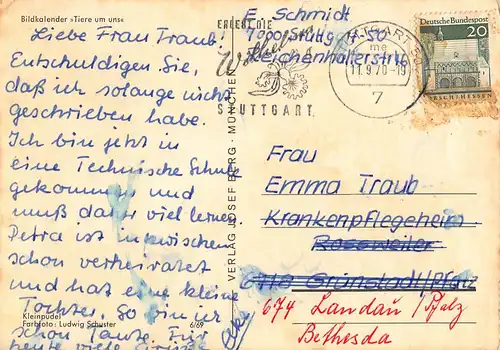 Bildkalender »Tiere um uns«
Liebe Frau Traub!
Entschuldigen Sie,
daß ich solange nicht
geschrieben habe.
Ich bin jetzt in
eine Technische Schule
gekommen und
muß dafür viel lernen.
Petra ist inzwischen
schon verheiratet
und hat eine kleine
Tochter. So bin ich
schon Tante. Für
heute viele Grüsse
Kleinpudel
Farbfoto: Ludwig Schuster
6/69
VERLAG JOSEF BERG · MÜNCHEN
ERLEBT DIE
STUTTGART
E. Schmidt
7 Stuttg. 50
Reichenhallerstr.
STUTTGART
me
11.9.70-19
7
Deutsche Bundespost
20
LORSCH/HESSEN
Frau
Emma Traub
Krankenpflegeheim
6718 Grünstadt/Pfalz
674 Landau/Pfalz
Bethesda